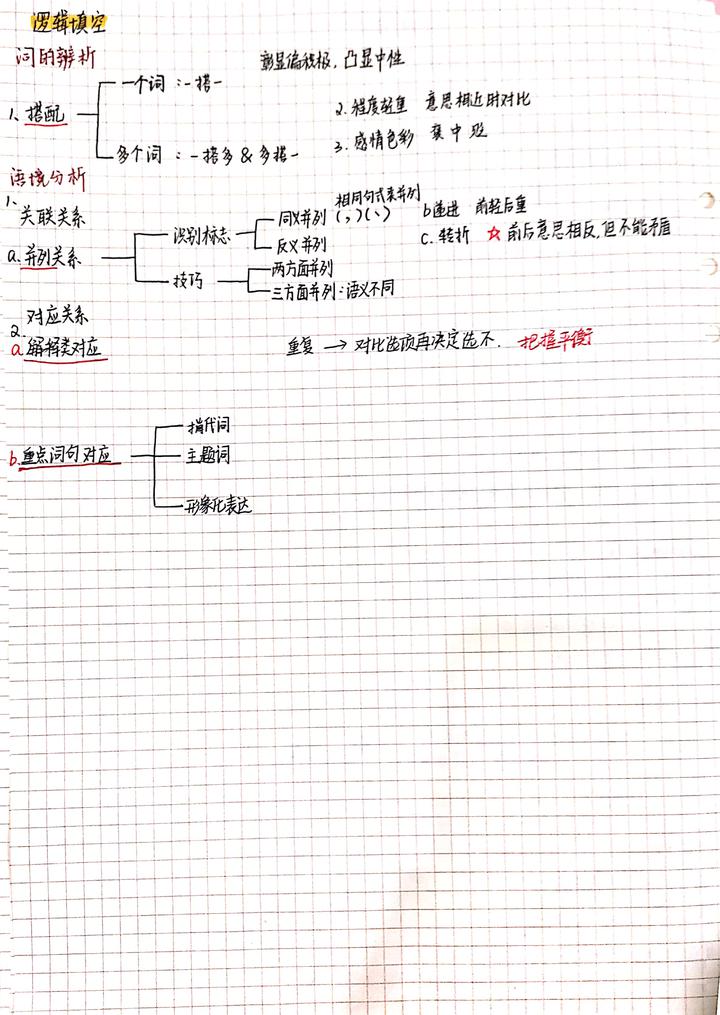 逻辑填空
词的辨析
彰显偏积极,凸显中性
1、搭配
一个词:一搭一
多个词:一搭多&多搭一
2.程度轻重 意思相近时对比
3.感情色彩 褒中贬
语境分析
1、关联关系
a.并列关系
识别标志
同义并列
反义并列
相同句式来并列
(,)(、)
技巧
两方面并列
三方面并列:语义不同
b递进 前轻后重
c.转折 ☆前后意思相反,但不能矛盾
2.对应关系
a.解释类对应
重复→对比选项再决定选不. 把握平衡
b.重点词句对应
指代词
主题词
形象化表达